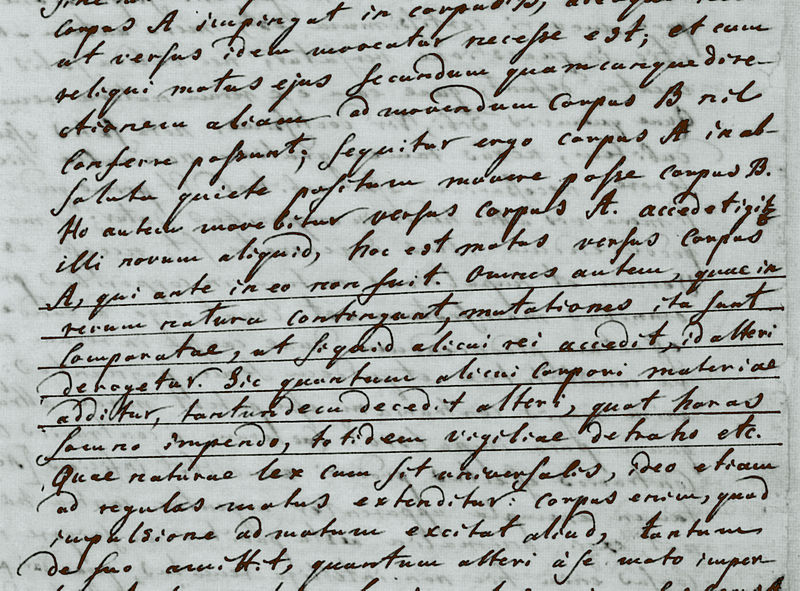 corpus A impingat in corpus B,
ut versus idem moveatur necesse est; et cum
reliqui motus ejus secundum quamcunque dire-
ctionem aliam ad movendum corpus B nil
conferre possunt; sequitur ergo corpus A in ab-
soluta quiete positum movere posse corpus B.
Ho autem movebitur versus corpus A. accedet igit
illi novum aliquid, hoc est motus versus corpus
A, qui ante in eo non fuit. Omnes autem, quae in
rerum natura contingunt, mutationes ita sunt
comparatae, ut si quid alicui rei accedit, id alteri
derogetur. Sic quantum alicui corpori materiae
additur, tantundem decedit alteri, quot horas
somno impendo, totidem vigiliae detraho etc.
Quae naturae lex cum sit universalis, ideo etiam
ad regulas motus extenditur: corpus enim, quod
impulsione ad motum excitat aliud, tantum
de suo amittit, quantum alteri à se moto imper